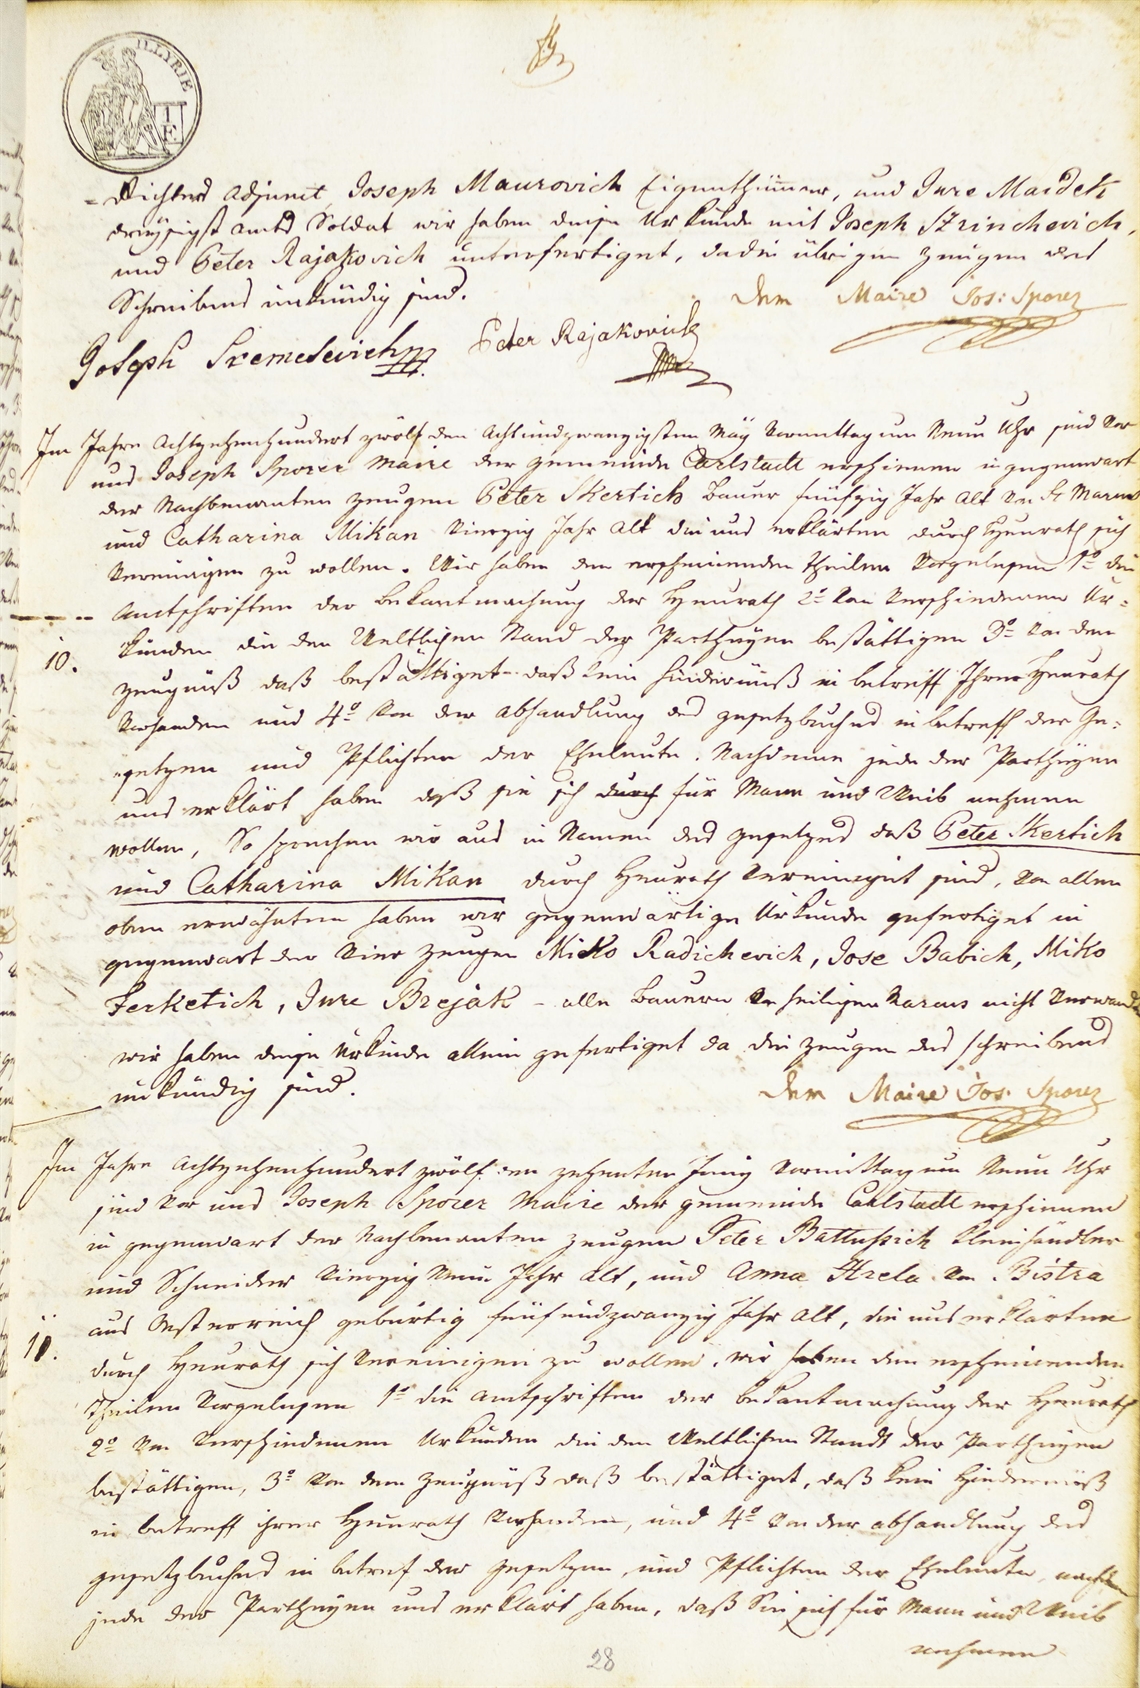 ILLYRIE
T E
Richters Adjunct, Joseph Maurovich Eigenthümmer, und Jure Mardek
dreysigst amts Soldat wir haben diese Urkunde mit Joseph Szrinchevich,
und Peter Rajakovich unterfertiget, dadie übrigen Zeugen des
Schreibens unkündig sind.
Der Maire Jos: Sporer
Joseph Sremchevich
Peter Rajakovich
Im Jahre Achtzehenhundert zwölf den Achtundzwanzigsten May Vormittag um Neun Uhr sind Vor
uns Joseph Sporer Maire der Gemeinde Carlstadt erschienen in gegenwart
der Nachbenanten Zeugen Peter Skertich Bauer fünfzig Jahr Alt Von St Marcus
und Catharina Mikan Vierzig Jahr Alt die uns erklärten durch Heurath sich
Vereinigen zu wollen. Wir haben den erscheinenden Theilen Vorgelesen 1o die
Amtschriften der bekantmachung der Heurath 2o Von Verschiedenen Ur=
kunden die den Weltlichen Stand der Partheyen bestättigen 3o Von dem
10.
Zeugnüß daß bestättiget daß kein Hindernüß in betreff Ihrer Heurath
Vorhanden und 4o Von der Abhandlung des gesetzbuches in betreff der Ge=
setzen und Pflichten der Eheleute. Nachdeme jede der Partheyen
uns erklärt haben daß sie sich durch für Mann und Weib nehmen
wollen, So sprechen wir aus in Namen des gesetzes daß Peter Skertich
und Catharina Mikan durch Heurath Vereiniget sind, Von allen
oben erwähnten haben wir gegenwärtige Urkunde gefertiget in
gegenwart der Vier Zeugen Miko Radichevich, Jose Babich, Miko
Ferketich, Jure Brejak - alle Bauern Von heiligen Marcus nicht Verwandt
wir haben diese Urkunde allein gefertiget da die Zeugen des schreibens
unkündig sind.
Der Maire Jos. Sporer
Im Jahre Achtzehenhundert zwölf den zehenten Juny Vormittag um Neun Uhr
sind Vor uns Joseph Sporer Maire der gemeinde Carlstadt erschienen
in gegenwart der Nachbenanten Zeugen Peter Battussich Kleinhändler
und Schneider Vierzig Neun Jahr Alt, und Anna Hrela Von Bistra
aus Oesterreich gebürtig fünfundzwanzig Jahr Alt, die uns erklärten
11.
durch Heurath sich Vereinigen zu wollen, wir haben den erscheinenden
Theilen Vorgelesen 1o die Amtschriften der bekantmachung der Heurath
2o Von Verschiedenen Urkunden die den Weltlichen Stands der Partheyen
bestättigen, 3o Von dem Zeugnüß daß bestättiget, daß kein Hindernüß
in betreff ihrer Heurath Vorhanden, und 4o Von der abhandlung des
gesetzbuches in betref der gesetzen, und Pflichten der Eheleute, nachdem
jede der Partheyen uns erklärt haben, daß Sie sich für Mann und Weib
nehmen
28